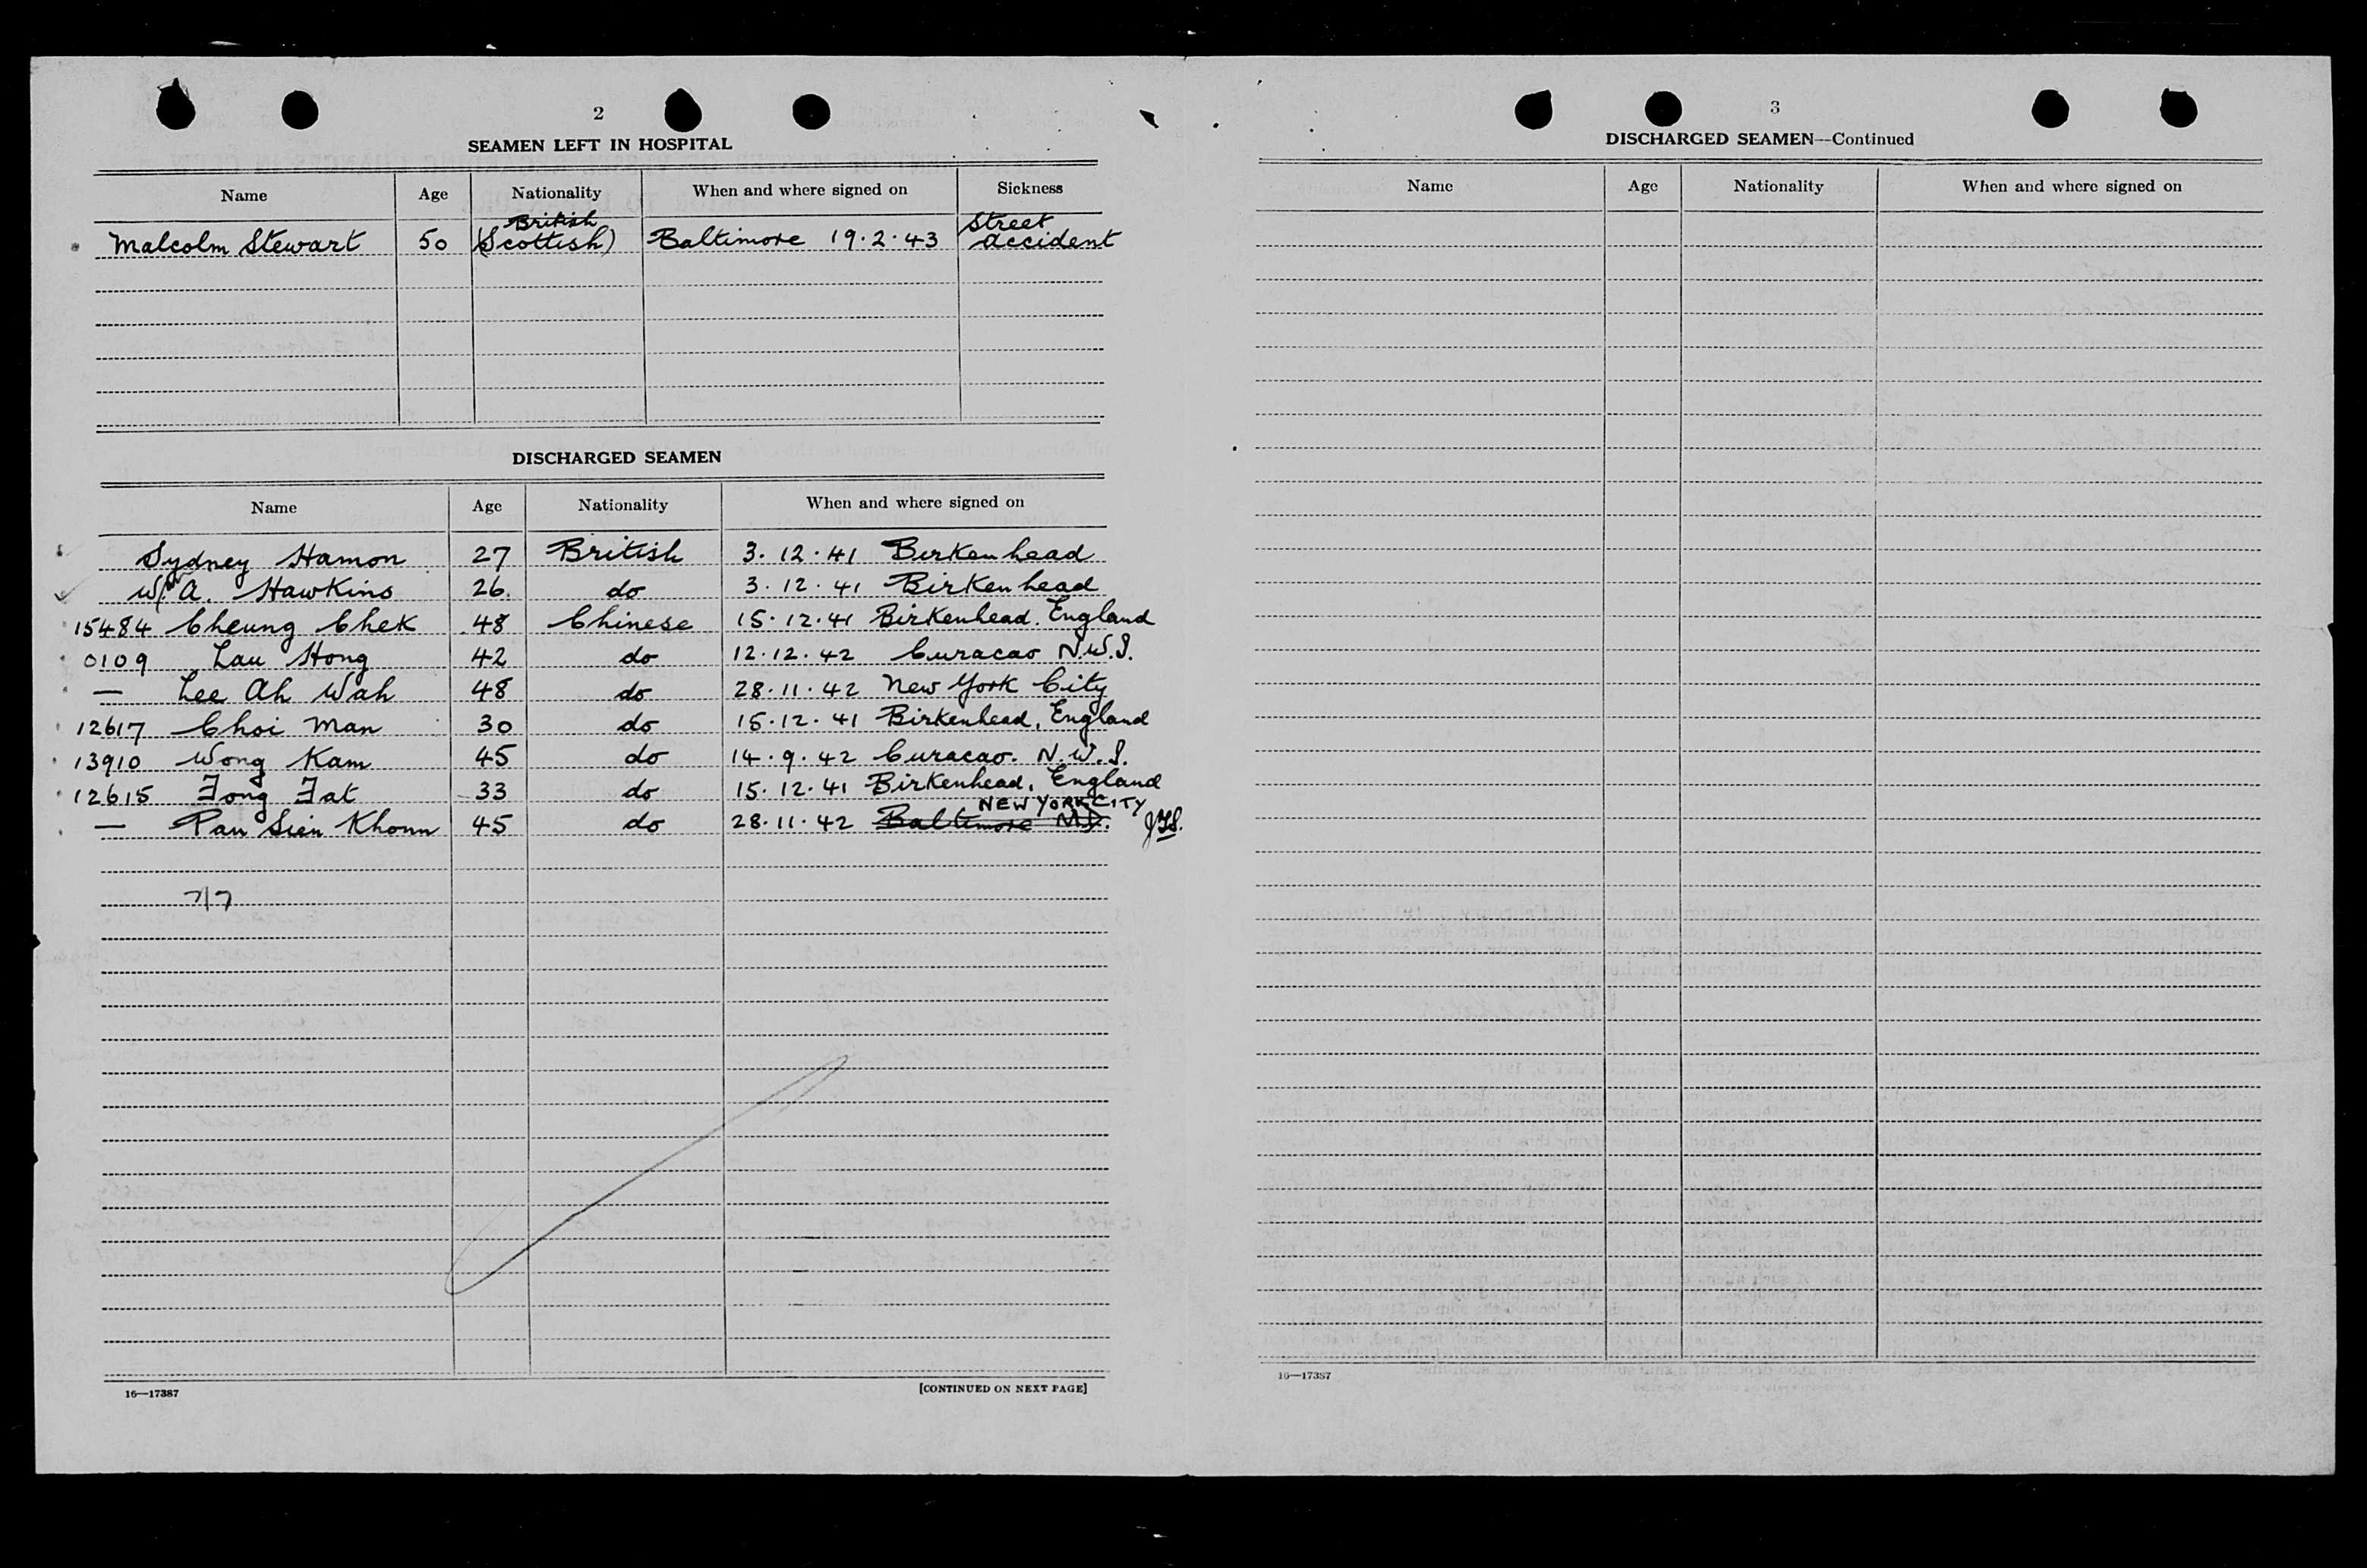 2
SEAMEN LEFT IN HOSPITAL
Name Age Nationality When and where signed on Sickness
British Street
Malcolm Stewart 50 (Scottish) Baltimore 19.2.43 accident
DISCHARGED SEAMEN
Name Age Nationality When and where signed on
Sydney Hamon 27 British 3.12.41 Birkenhead
Wm A. Hawkins 26 do 3.12.41 Birkenhead
15484 Cheung Chek 48 Chinese 15.12.41 Birkenhead. England
0109 Lau Hong 42 do 12.12.42 Curacao N.W.I.
— Lee Ah Wah 48 do 28.11.42 New York City
12617 Choi Man 30 do 15.12.41 Birkenhead, England
13910 Wong Kam 45 do 14.9.42 Curacao. N.W.I.
12615 Fong Fat 33 do 15.12.41 Birkenhead, England
NEW YORK CITY
— Pan Sien Khoun 45 do 28.11.42 Baltimore MD.
7/7
16—17387 [CONTINUED ON NEXT PAGE]
3
DISCHARGED SEAMEN—Continued
Name Age Nationality When and where signed on
16—17387